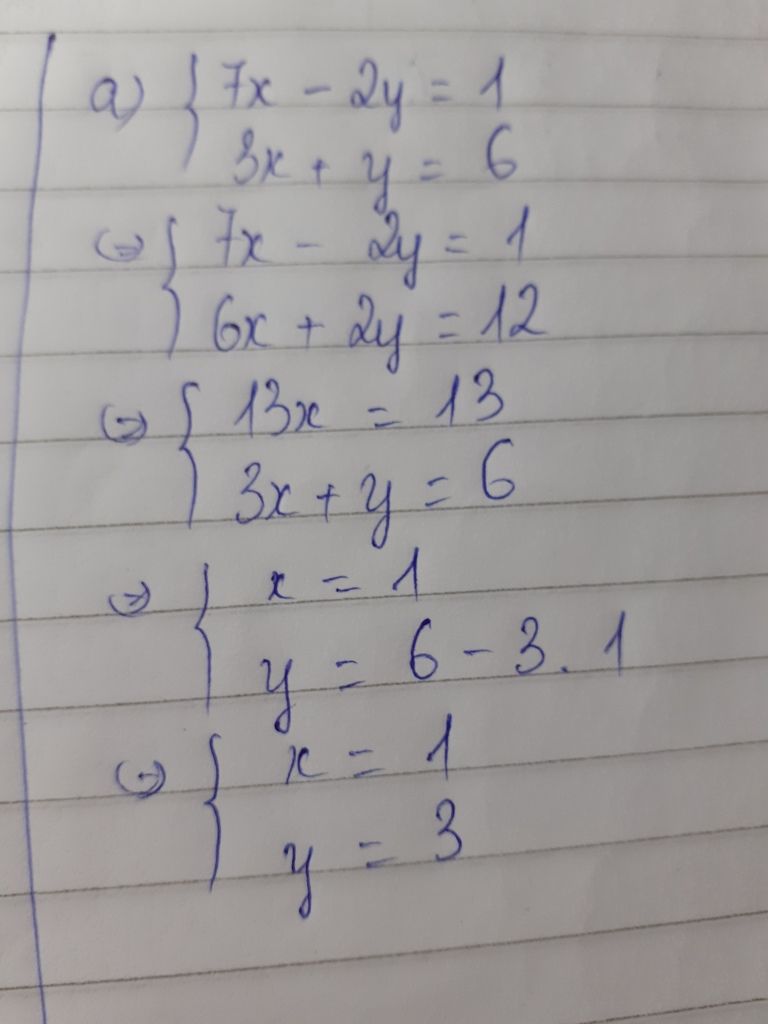 a) { 7x - 2y = 1
3x + y = 6
⇔ { 7x - 2y = 1
6x + 2y = 12
⇔ { 13x = 13
3x + y = 6
⇔ { x = 1
y = 6 - 3. 1
⇔ { x = 1
y = 3